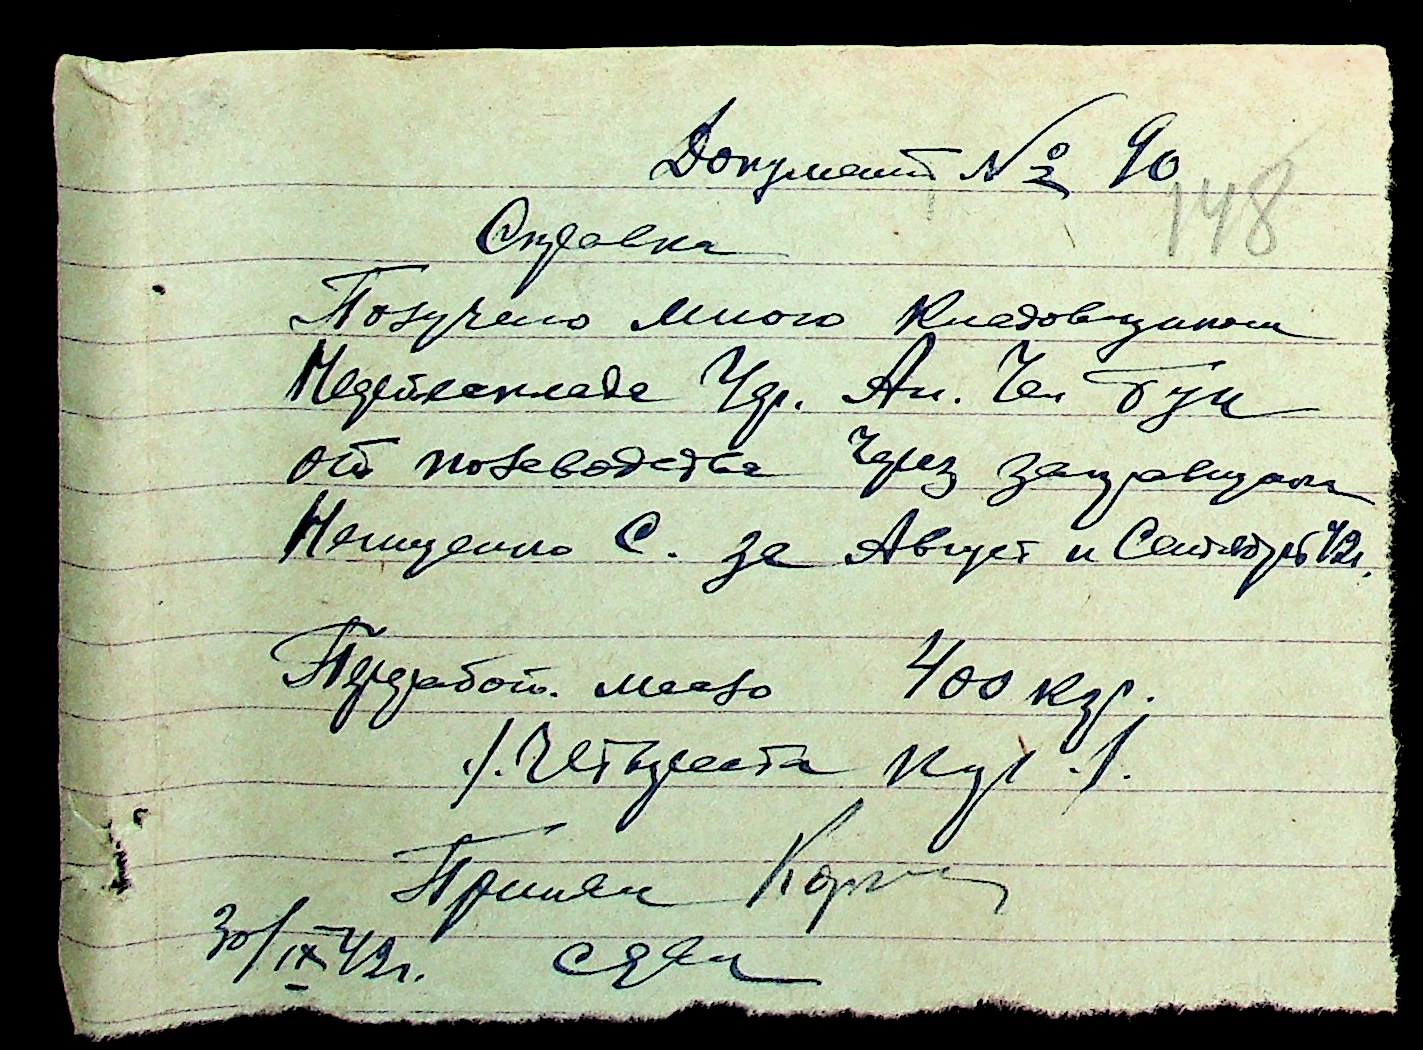 Документ № 90
148
Справка
Получено мною Кладовщиком
Нефтесклада Чдр. Ан. Чел Бун
от полеводства через заправщика
Нещенко С. за Август и Сентябрь 42г.
Переработ. масло 400 кгр.
/. Четыреста кгр ./.
Принял
30/IX 42г. сдал